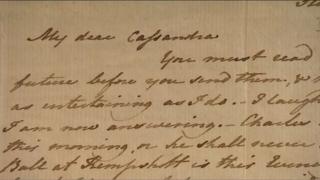 My dear Cassandra
You must read
future before you send them, &
as entertaining as I do. - I laugh
I am now answering. - Charles
this morning, or he shall never
Ball at Kempshott is this Evening